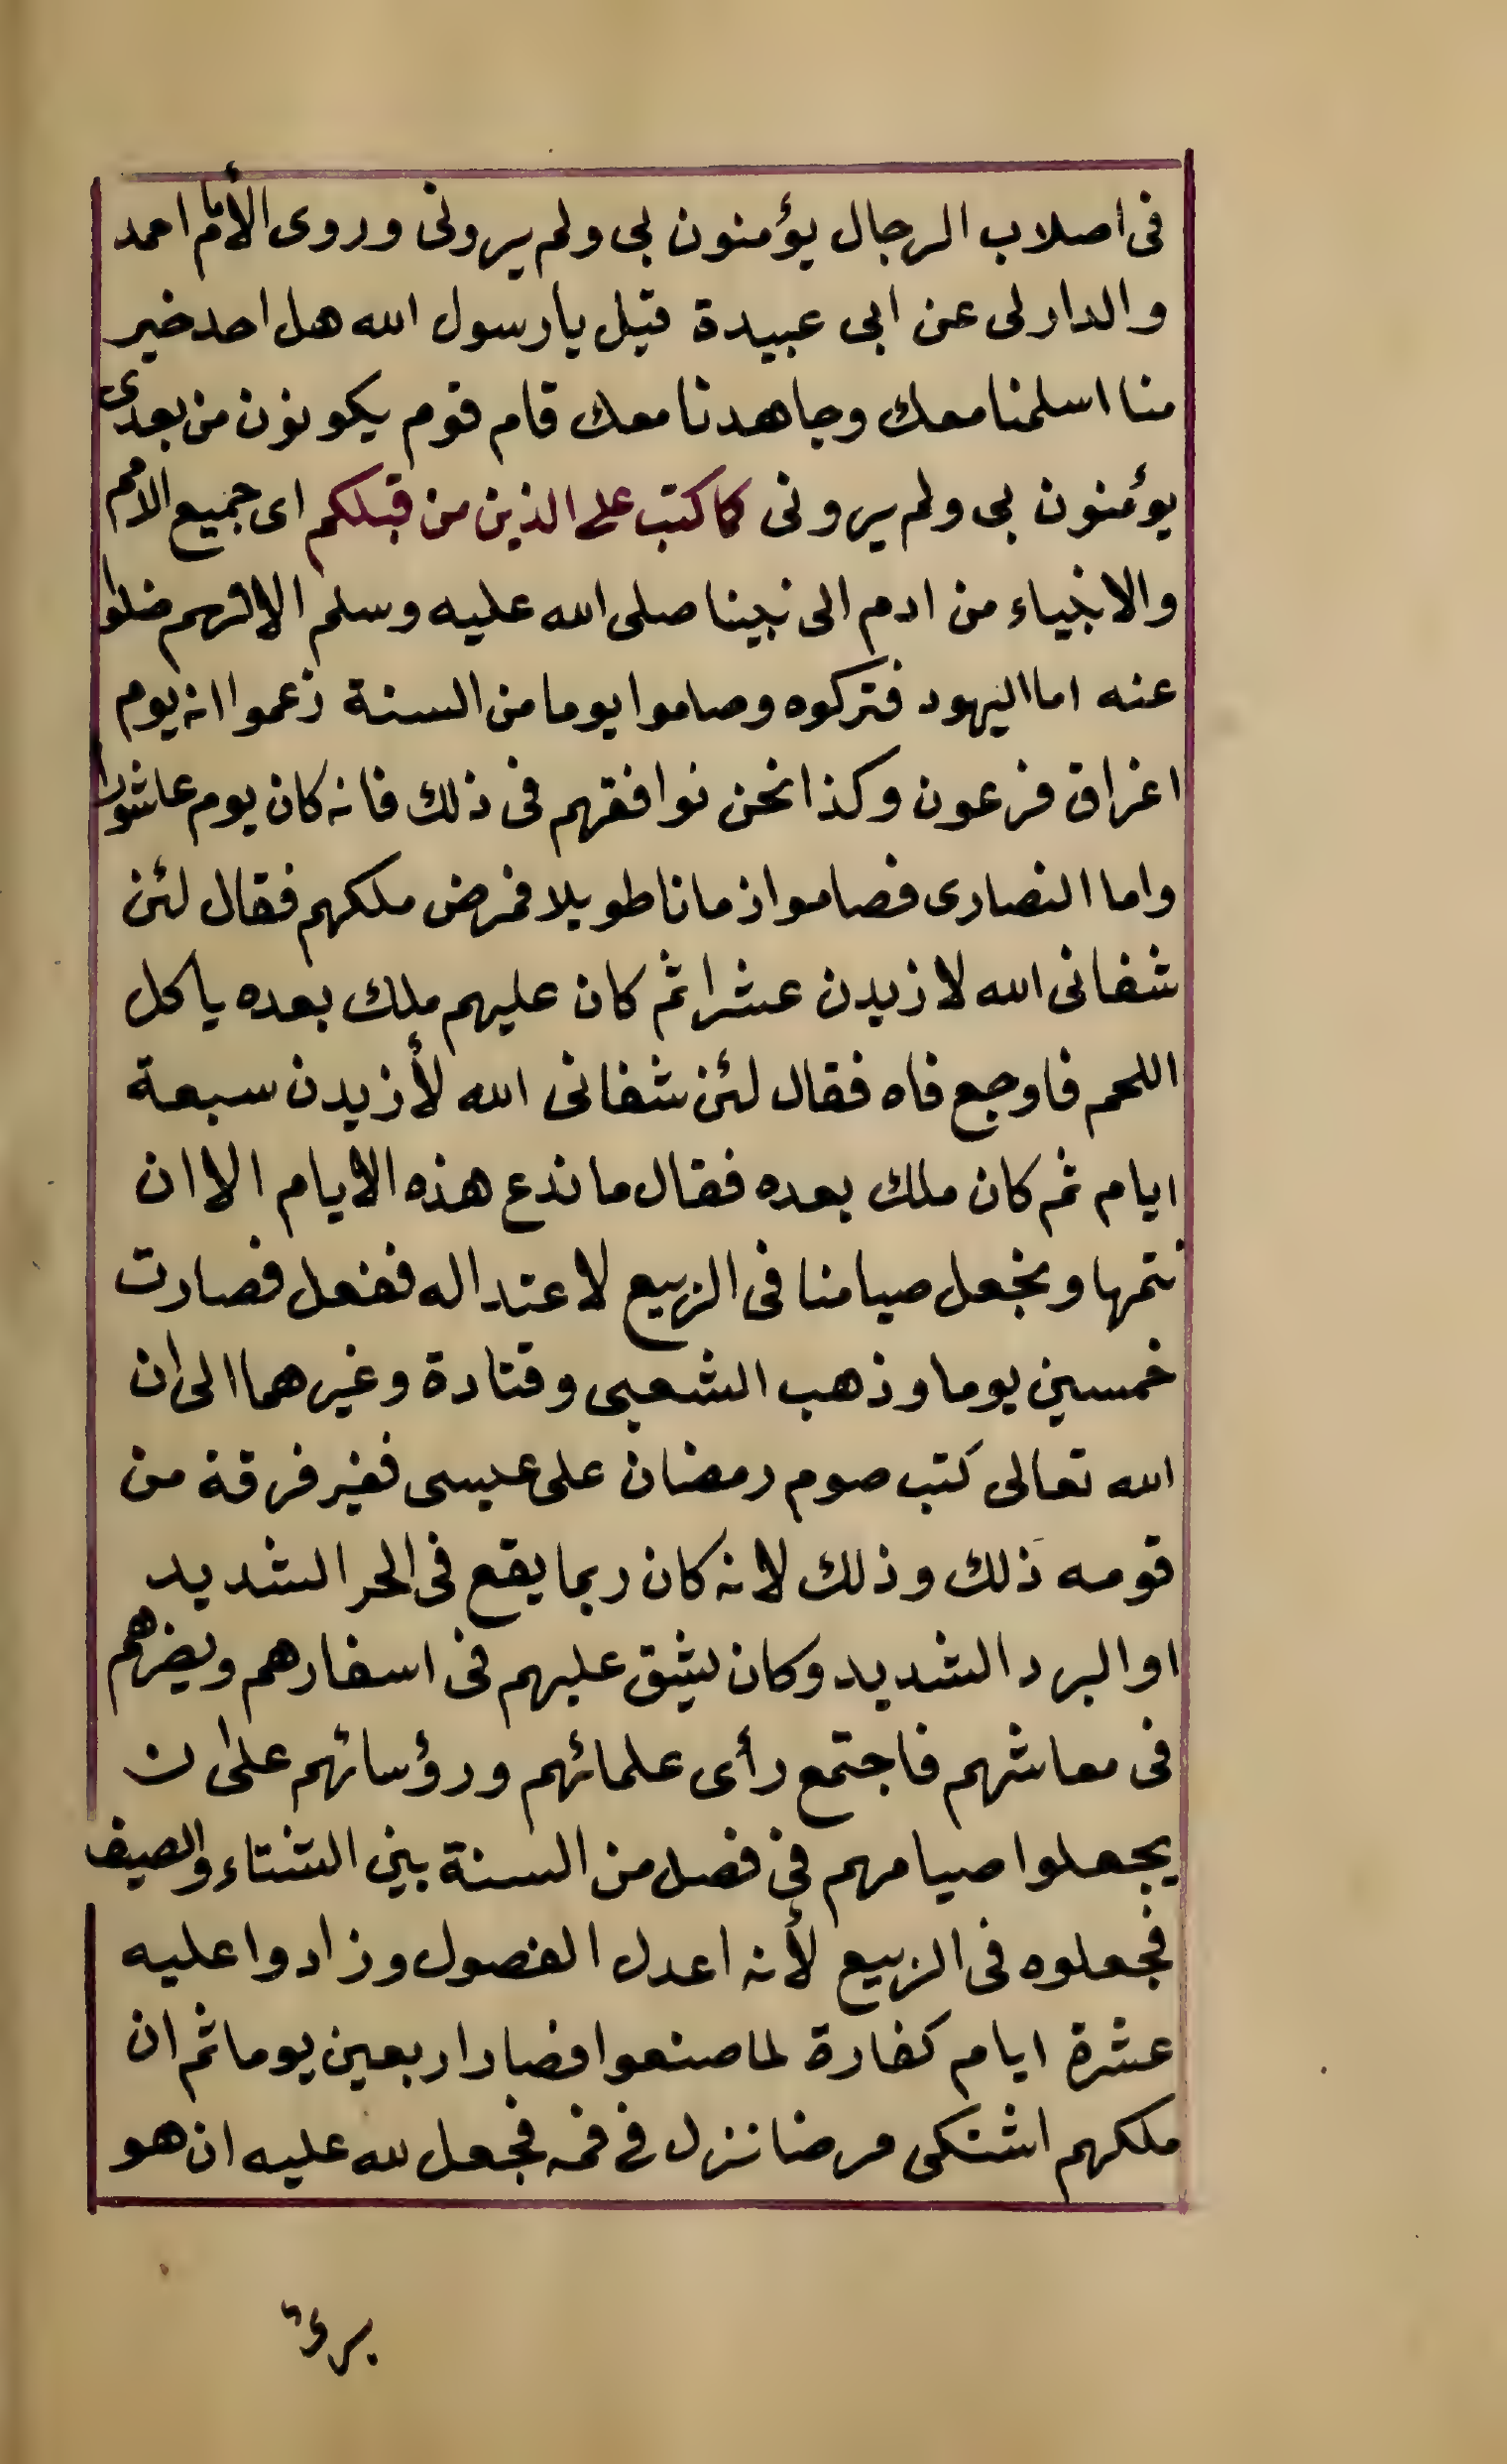 فى اصلاب الرجال يؤمنون بى ولم يرونى وروى الأمام احمد
والدارلى عن ابى عبيدة قيل يا رسول الله هل احد خير
منا اسلمنا معك وجاهدنا معك قام قوم يكونون من بعدى
يؤمنون بى ولم يرونى كما كتب على الذين من قبلكم اى جميع الامم
والانبياء من ادم الى نبينا صلى الله عليه وسلم الا انهم ضلوا
عنه اما اليهود فتركوه وصاموا يوما من السنة زعموا انه يوم
اغراق فرعون وكذا نحن نوافقهم فى ذلك فانه كان يوم عاشورا
واما النصارى فصاموا زمانا طويلا فمرض ملكهم فقال لئن
شفانى الله لازيدن عشرا ثم كان عليهم ملك بعده ياكل
اللحم فاوجع فاه فقال لئن شفانى الله لأزيدن سبعة
ايام ثم كان ملك بعده فقال ما ندع هذه الايام الا ان
نتمها ونجعل صيامنا فى الربيع لاعتداله ففعل فصارت
خمسين يوما وذهب الشعبى وقتادة وغيرهما الى ان
الله تعالى كتب صوم رمضان على عيسى فغير فرقة من
قومه ذلك وذلك لانه كان ربما يقع فى الحر الشديد
او البرد الشديد وكان يشق عليهم فى اسفارهم ويضرهم
فى معاشهم فاجتمع رأى علمائهم ورؤسائهم على ان
يجعلوا صيامهم فى فصل من السنة بين الشتاء والصيف
فجعلوه فى الربيع لأنه اعدل الفصول وزادوا عليه
عشرة ايام كفارة لما صنعوا فصار اربعين يوما ثم ان
ملكهم اشتكى مرضا نزل فى فمه فجعل لله عليه ان هو
برئ